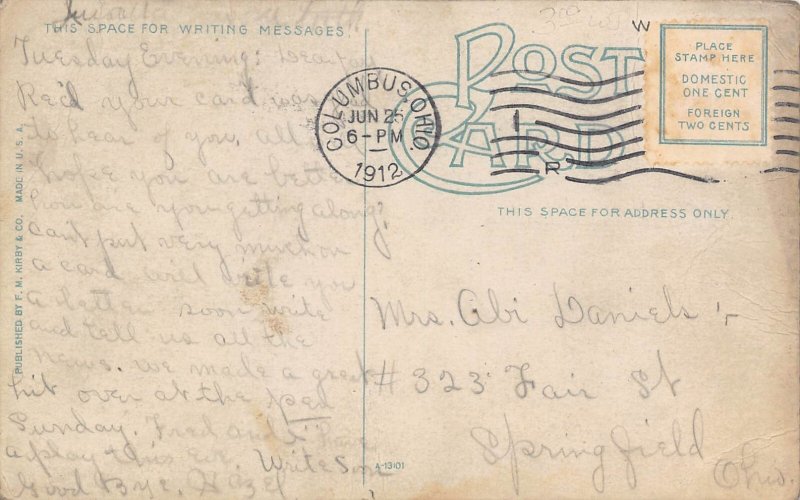 THIS SPACE FOR WRITING MESSAGES
Tuesday Evening:
Rec'd your card was glad
to hear of you, all
hope you are better
how are you getting along?
cant put very much on
a card will write you
a letter soon write
and tell us all the
news. we made a great
hit over at the pen
Sunday. Fred and I have
a play this Eve. Write Soon
Good Bye. Hazel
PUBLISHED BY F. M. KIRBY & CO. MADE IN U. S. A.
POST CARD
COLUMBUS, OHIO.
JUN 25
6-PM
1912
W
1
R
PLACE
STAMP HERE
DOMESTIC
ONE CENT
FOREIGN
TWO CENTS
THIS SPACE FOR ADDRESS ONLY.
Mrs. Abi Daniels
# 323 Fair St
Springfield
Ohio.
A-13101